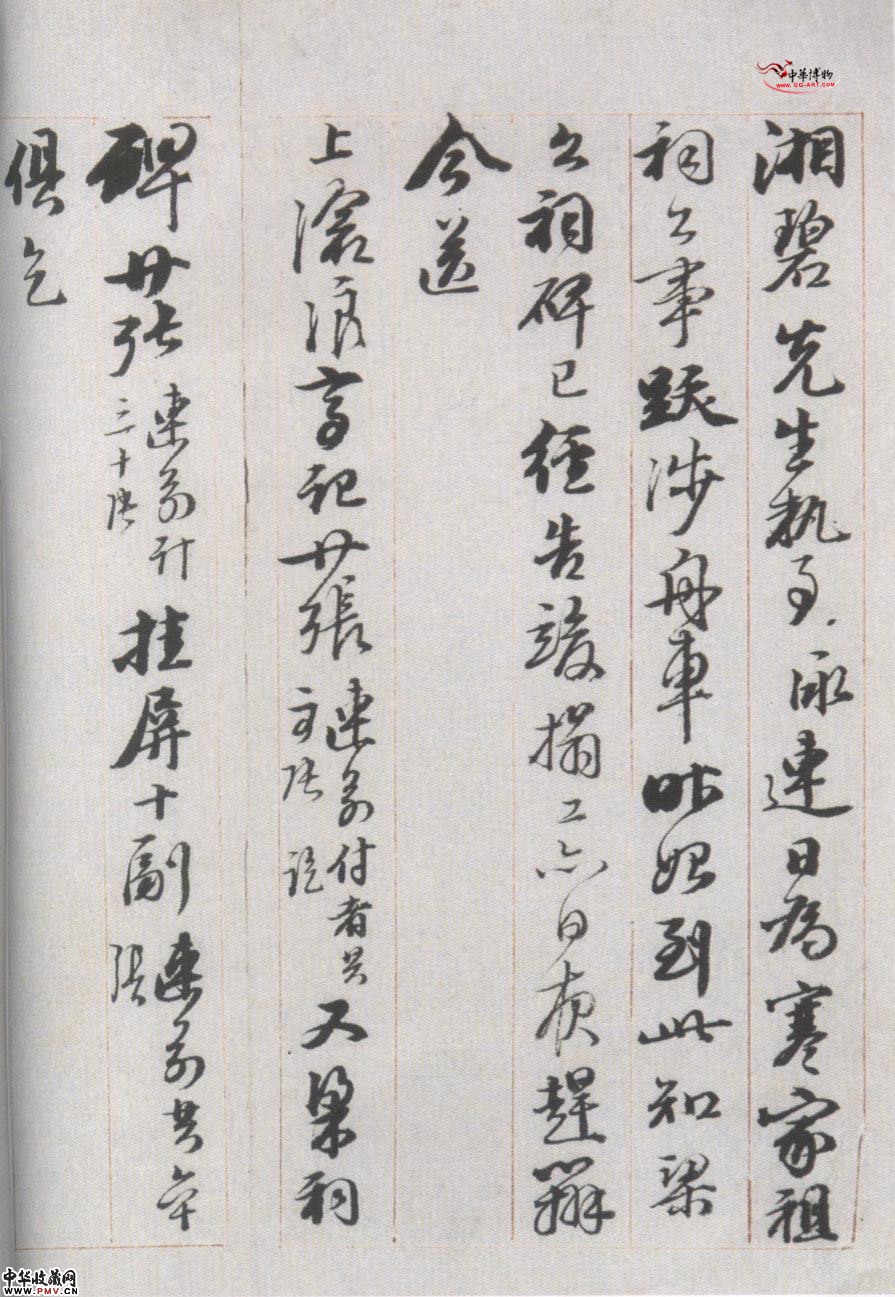 湘碧先生執事泳連日為寒家祖
祠公事跋涉舟車昨始到此知梁
公祠碑已經告竣搨工亦日夜趕辦
今送
上滄浪亭記廿張連前付者共
張訖
又梁祠
碑廿張連前計
三十張
挂屏十副連前共
張
俱乞
中華博物
WWW.GG-ART.COM
中华收藏网
WWW.PMV.CN